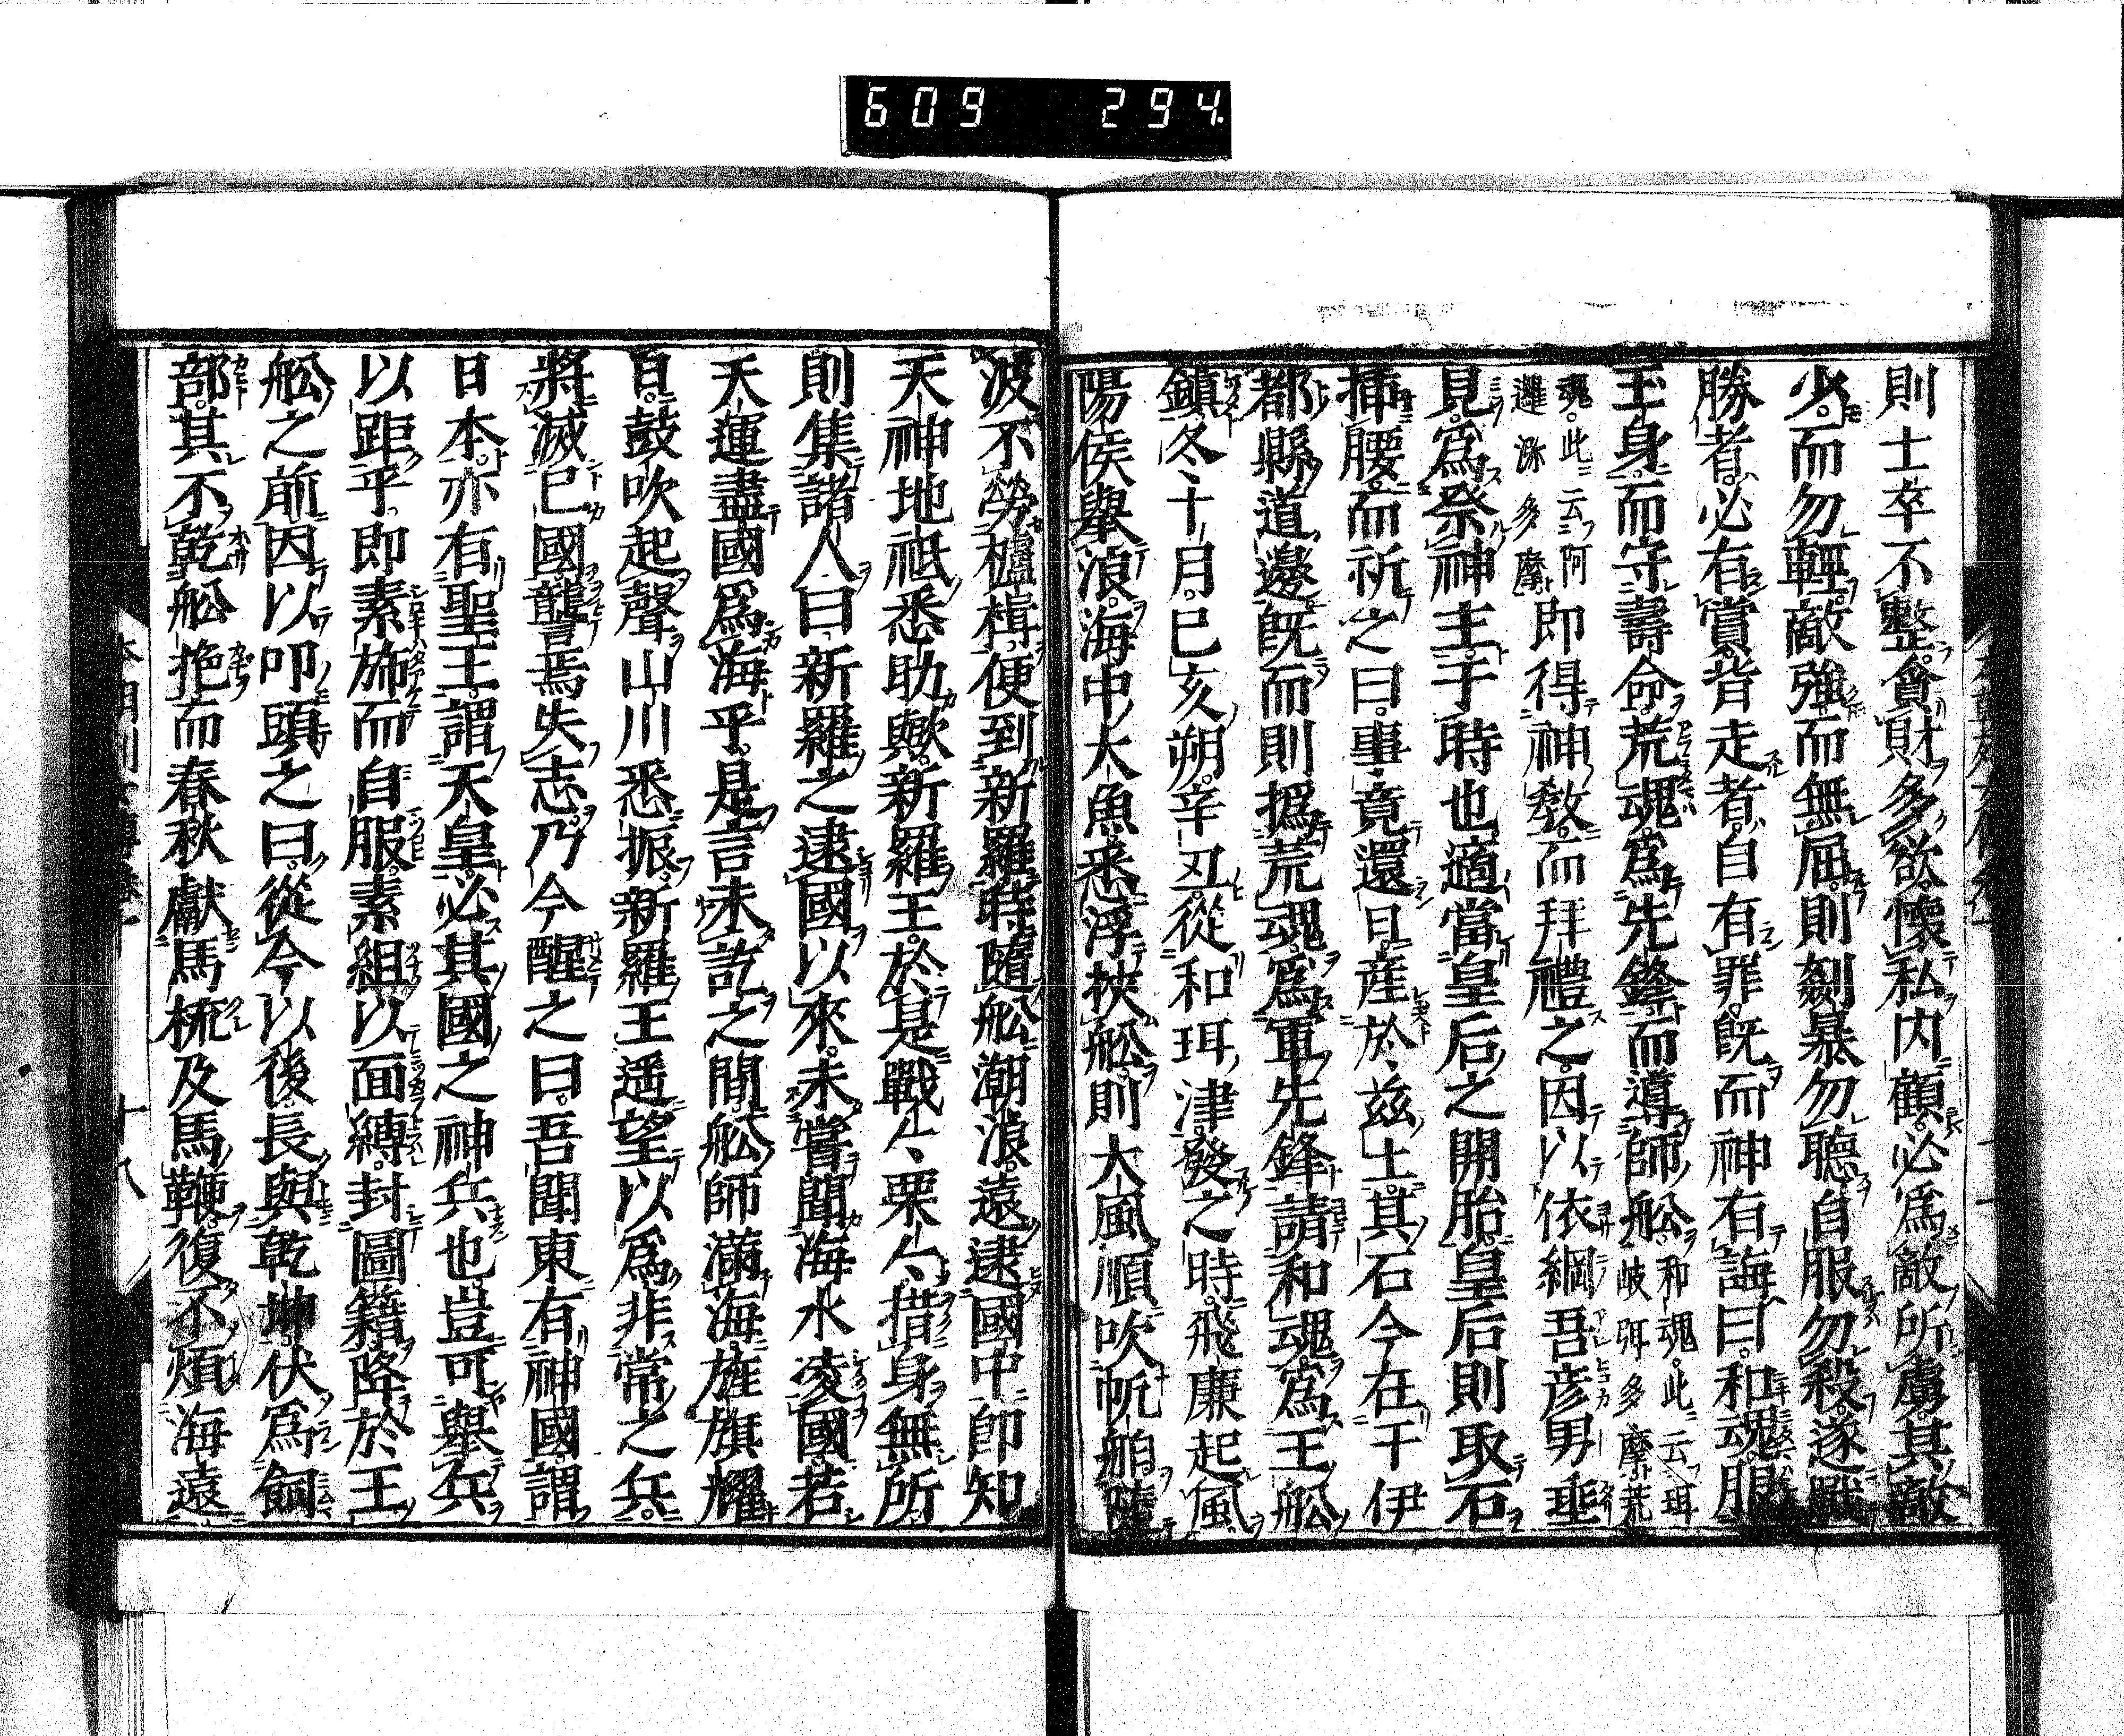 609 294.
則士卒不整貪財多欲懷私内顧必爲敵所虜其敵
少而勿輕敵強而無屈則姧暴勿聽自服勿殺遂戰
勝者必有賞背走者自有罪既而神有誨曰和魂服
王身而守壽命荒魂爲先鋒而導師舩和魂此云珥岐弭多摩荒
魂此云阿邏瀰多摩即得神教而拜禮之因以依網吾彦男垂
見爲祭神主于時也適當皇后之開胎皇后則取石
揷腰而祈之曰事竟還日産於茲土其石今在于伊
都縣道邊既而則撝荒魂爲軍先鋒請和魂爲王舩
鎮冬十月己亥朔辛丑從和珥津發之時飛廉起風
陽侯擧浪海中大魚悉浮挾舩則大風順吹帆舶隨
波不勞櫨楫便到新羅時隨舩潮浪遠逮國中即知
天神地祇悉助歟新羅王於是戰々栗々措身無所
則集諸人曰新羅之逮國以來未嘗聞海水凌國若
天運盡國爲海乎是言未訖之間舩師滿海旌旗耀
日鼓吹起聲山川悉振新羅王遥望以爲非常之兵
將滅己國讋焉失志乃今醒之曰吾聞東有神國謂
日本亦有聖王謂天皇必其國之神兵也豈可擧兵
以距乎即素旆而自服素組以面縛封圖籍降於王
舩之前因以叩頭之曰從今以後長與乾坤伏爲飼
部其不乾舩拖而春秋獻馬梳及馬鞭復不煩海遠
十八